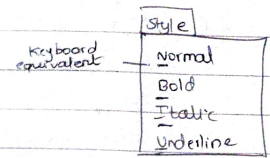 Style
Keyboard
equivalent
Normal
Bold
Italic
Underline